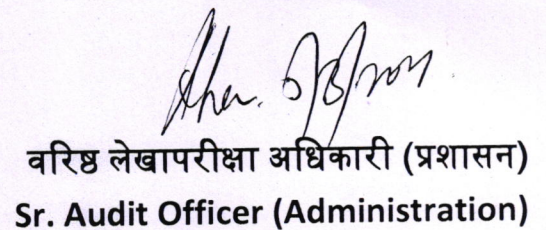 वरिष्ठ लेखापरीक्षा अधिकारी (प्रशासन)
Sr. Audit Officer (Administration)